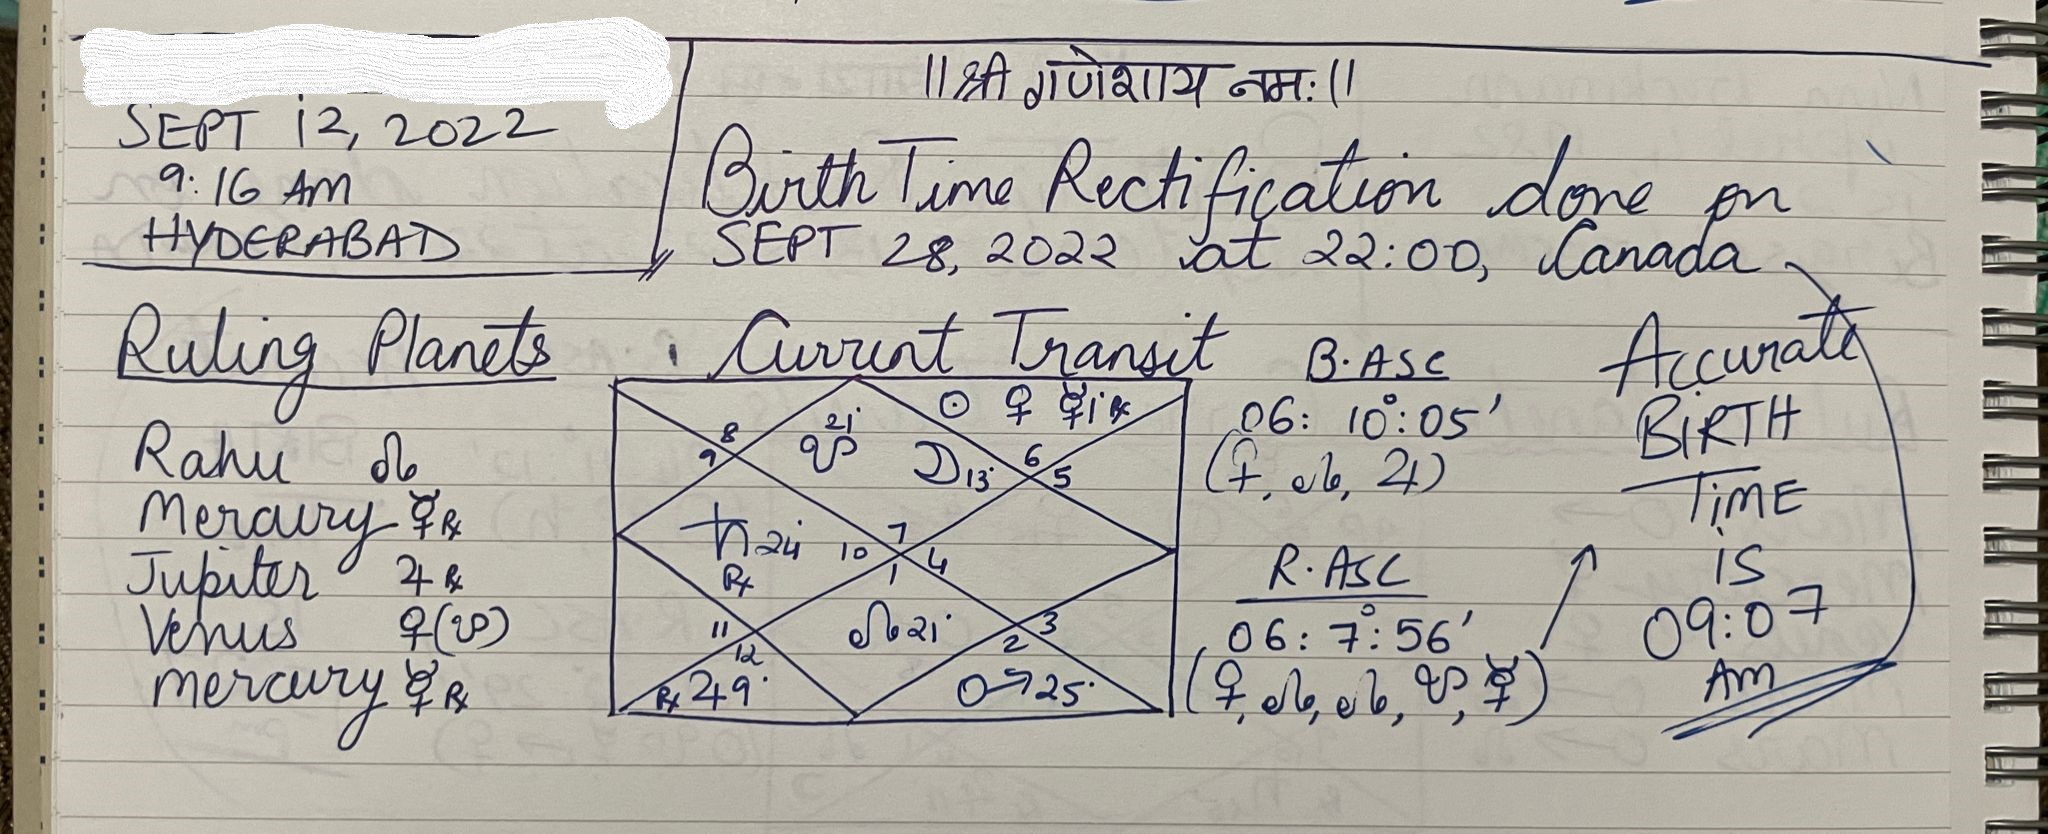 SEPT 12, 2022
9:16 AM
HYDERABAD
॥ श्री गणेशाय नमः ॥
Birth Time Rectification done on
SEPT 28, 2022 at 22:00, Canada
Ruling Planets
Rahu ☊
Mercury ☿ ℞
Jupiter ♃ ℞
Venus ♀(☋)
Mercury ☿ ℞
Current Transit
☉ ♀ ☿1 ℞
8 21 6
9 ☋ ☽13 5
♄24 10 7 4
℞ 1
11 ☊21 3
12 2
℞ ♃9 ♂25
B.ASC
06: 10°: 05'
(♀, ☊, ♃)
R.ASC
06: 7°: 56'
(♀, ☊, ☊, ☋, ☿)
Accurate
BIRTH
TIME
is
09:07
AM